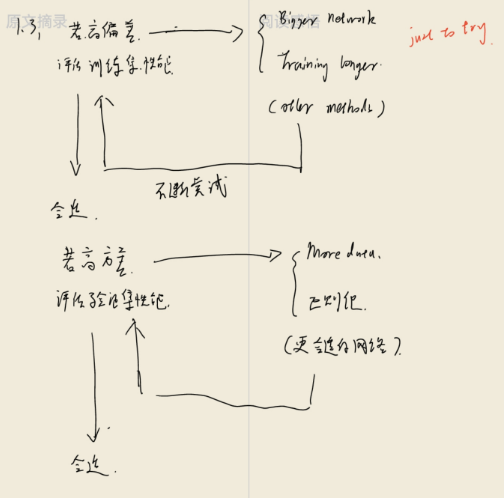 原文摘录
1.3, 若高偏差
评估训练集性能
Bigger network
Training longer.
(other methods)
just to try.
不断尝试
合适.
若高方差
评估验证集性能.
More data.
正则化.
(更合适的网络).
合适.